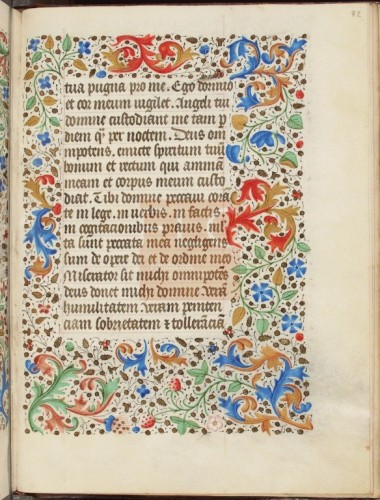 82
tua pugna pro me. Ego dormio
et cor meum vigilet. Angeli tui
domine custodiant me tam p
diem qͣ per noctem. Deus om
nipotens, emitte spiritum tuū
bonum et rectum qui animā
meam et corpus meum custo
diat. Tibi domine peccavi cora
et in lege, in verbis, in factis,
in cogitationibus pravis, mul
ta sunt peccata mea negligens
sum de opere dei et de ordine meo
Miserator sit michi omnipotēs
deus donet michi domine verā
humilitatem veram peniten
ciam sobrietatem & tollerācia